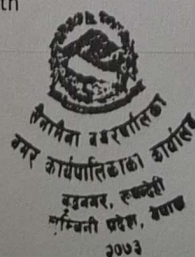 th
सैनामैना नगरपालिका
नगर कार्यपालिकाको कार्यालय
बुद्धनगर, रूपन्देही
लुम्बिनी प्रदेश, नेपाल
२०७३